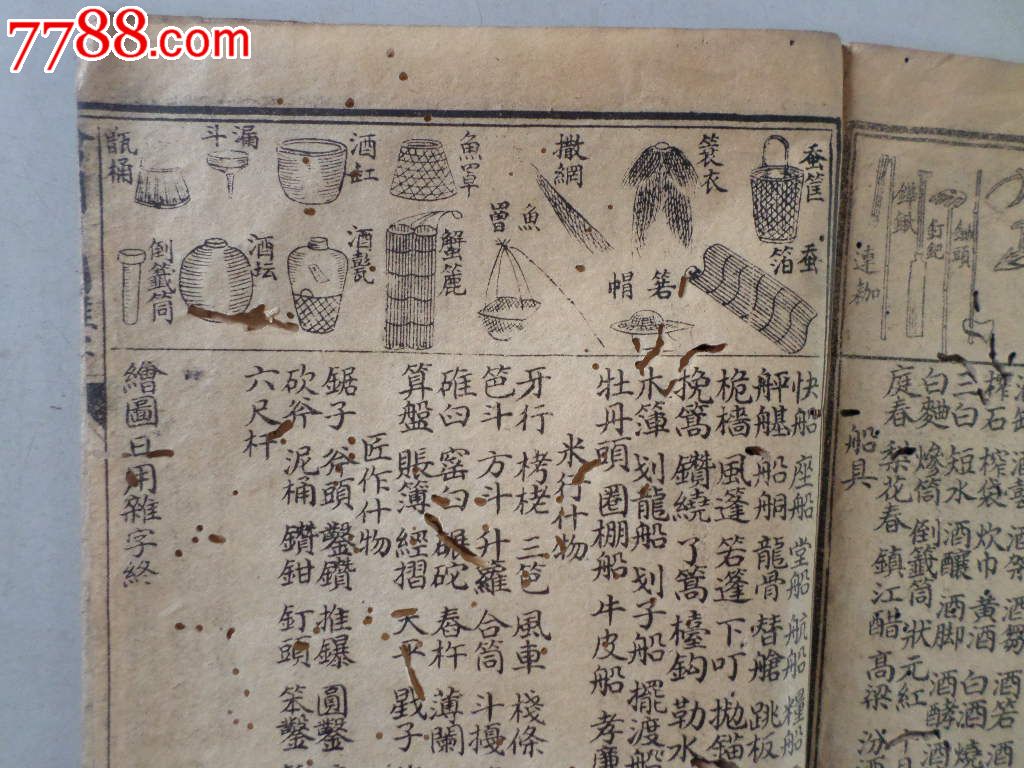 7788.com
蚕筐
蓑衣
撒網
魚罩
酒缸
漏斗
甑桶
蚕箔
箬帽
魚罾
蟹簏
酒甏
酒坛
倒籤筒
連枷
釘耙
快船 座船 堂船 航船 糧船
船艙 龍骨 替艙 跳板
桅檣 風蓬 箬蓬 下叮 拋錨
挽篙 鑽繞 了篙 檯鈎 勒水
木簰 划龍船 划子船 擺渡船
牡丹頭 圈棚船 牛皮船 孝廉
米行什物
牙行 栲栳 三笆 風車 棧條
笆斗 方斗 升籮 合筒 斗擾
碓臼 窑臼 碾砣 舂杵 薄闌
算盤 賬簿 經摺 天平 戥子
匠作什物
鋸子 斧頭 鑿鑽 推鑤 圓鑿
砍斧 泥桶 鑽鉗 釘頭 笨鑿
六尺杆
繪圖日用雜字終
榨石 榨袋 炊巾 黄酒 白酒 燒
三白 短水 酒釀 酒脚 酒酵 酒
白麵 摻筒 倒籤筒 狀元紅
庭春 梨花春 鎮江醋 高梁 汾酒
船具